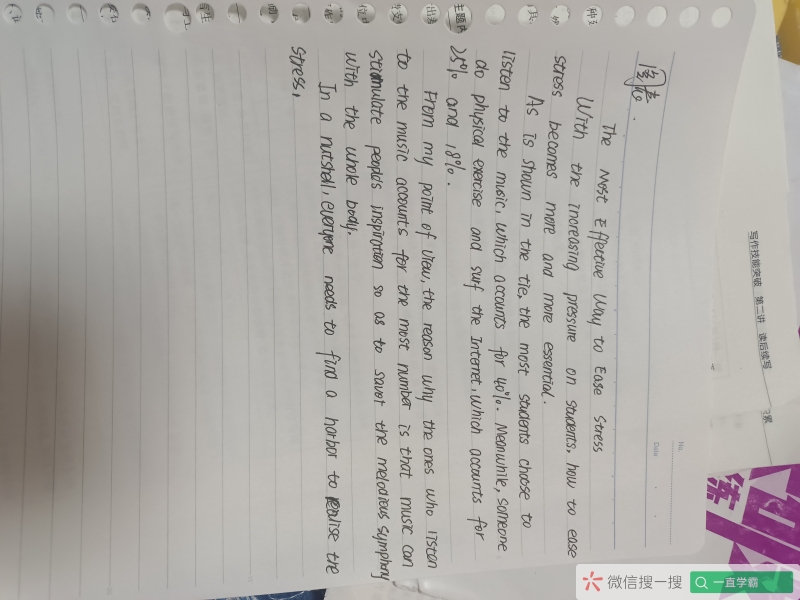 No.
Date
The Most Effective Way to Ease Stress
With the increasing pressure on students, how to ease
stress becomes more and more essential.
As is shown in the tie, the most students choose to
listen to the music, which accounts for 40%. Meanwhile, someone
do physical exercise and surf the Internet, which accounts for
25% and 18%.
From my point of view, the reason why the ones who listen
to the music accounts for the most number is that music can
stimulate people's inspiration so as to savor the melodious symphony
with the whole body.
In a nutshell, everyone needs to find a harbor to realise the
stress.
写作技能突破 第二讲 读后续写
练
微信搜一搜
一直学霸